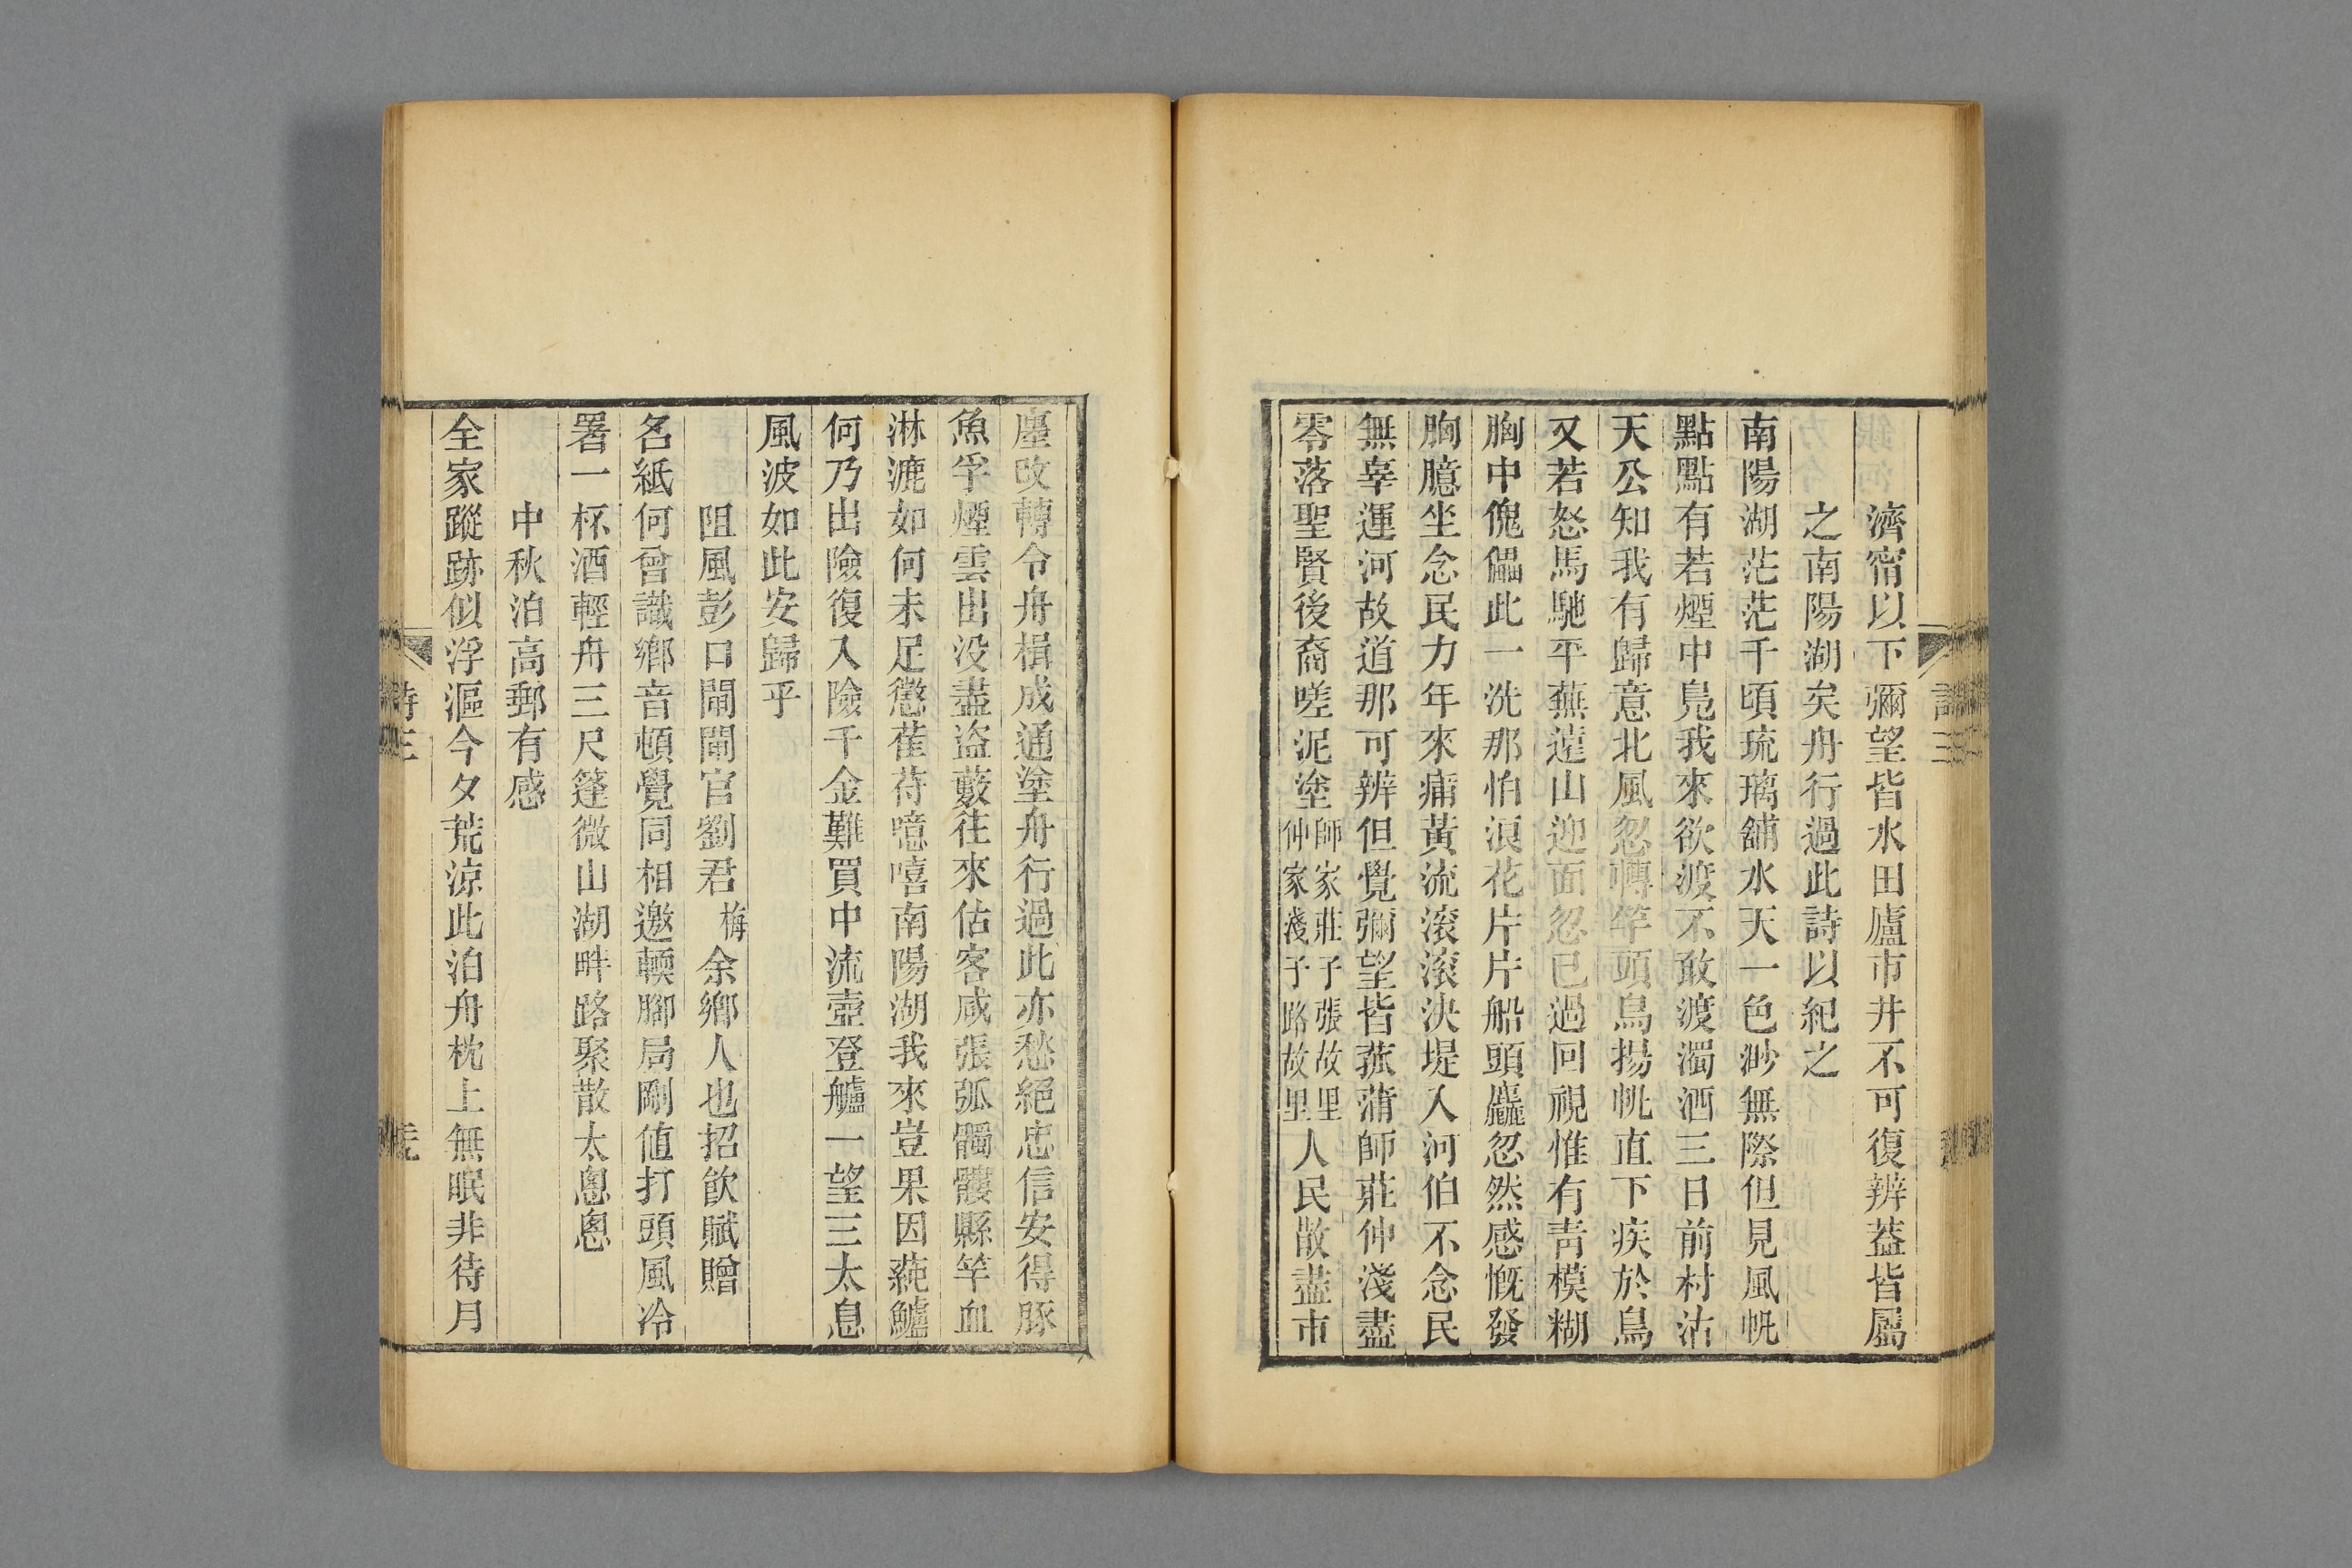 濟甯以下彌望皆水田廬市井不可復辨葢皆屬
之南陽湖矣舟行過此詩以紀之
南陽湖茫茫千頃琉璃舖水天一色渺無際但見風帆
點點有若煙中鳧我來欲渡不敢渡濁酒三日前村沽
天公知我有歸意北風忽轉竿頭烏揚帆直下疾於鳥
又若怒馬馳平蕪遠山迎面忽已過回視惟有青模糊
胸中傀儡此一洗那怕浪花片片船頭麤忽然感慨發
胸臆坐念民力年來痡黃流滾滾決堤入河伯不念民
無辜運河故道那可辨但覺彌望皆菰蒲師莊仲淺盡
零落聖賢後裔嗟泥塗師家莊子張故里仲家淺子路故里人民散盡市
廛改轉令舟楫成通塗舟行過此亦愁絕忠信安得豚
魚孚煙雲出没盡盜藪往來估客咸張弧髑髏縣竿血
淋漉如何未足懲萑苻噫嘻南陽湖我來豈果因蒓鱸
何乃出險復入險千金難買中流壺登艫一望三太息
風波如此安歸乎
阻風彭口閘閘官劉君梅余鄉人也招飲賦贈
名紙何曾識鄉音頓覺同相邀輭腳局剛値打頭風冷
署一杯酒輕舟三尺篷微山湖畔路聚散太悤悤
中秋泊高郵有感
全家蹤跡似浮漚今夕荒涼此泊舟枕上無眠非待月